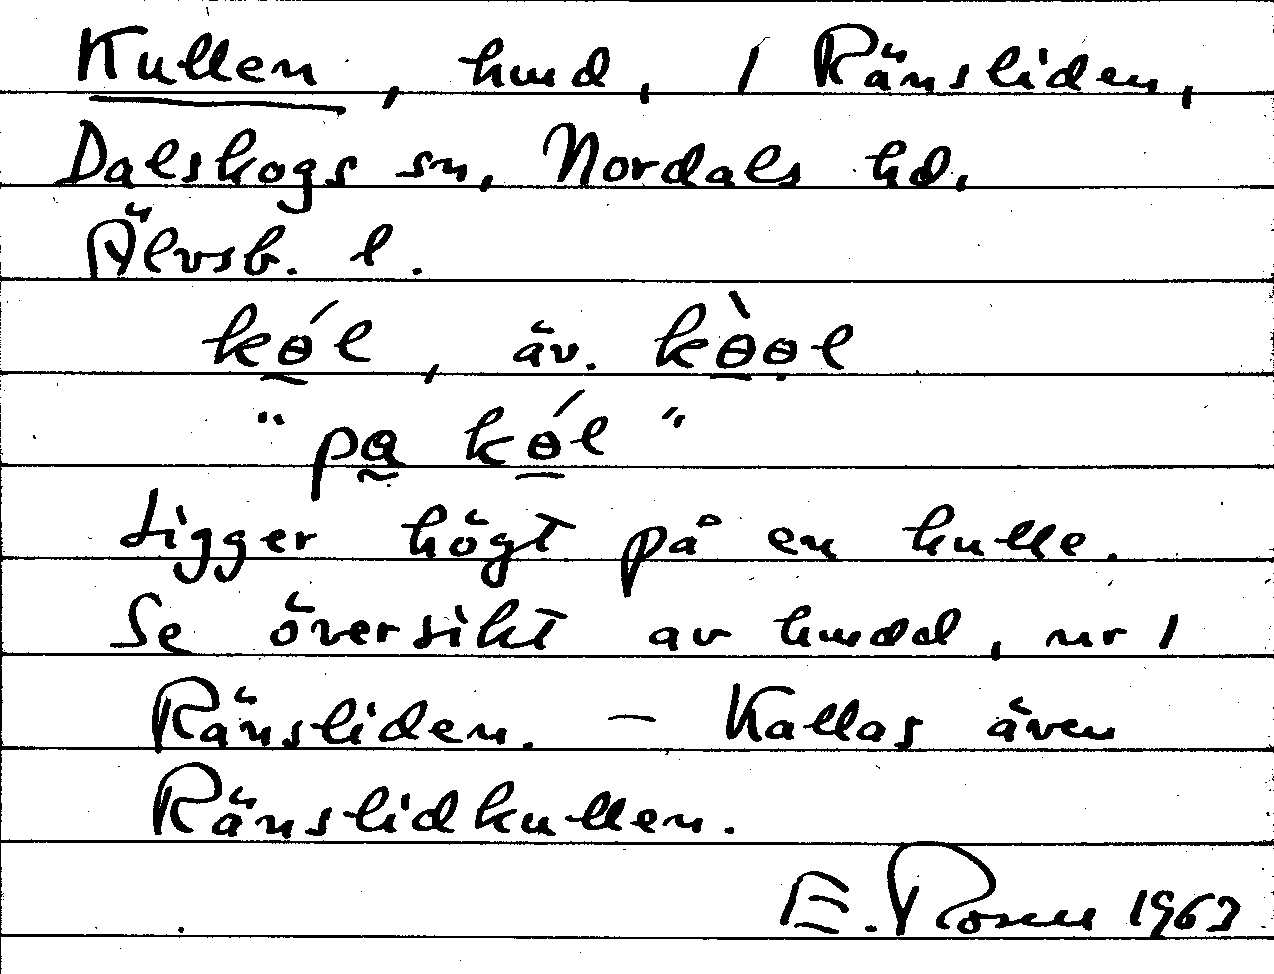 Kullen, hmd, 1 Ränsliden,
Dalskogs sn, Nordals hd,
Älvsb. l.
kɵ́l, äv. kɵ̀ɵl
"pa kɵ́l"
Ligger högt på en kulle.
Se översikt av hmdd, nr 1
Ränsliden. – Kallas även
Ränslidkullen.
E. Rosell 1963